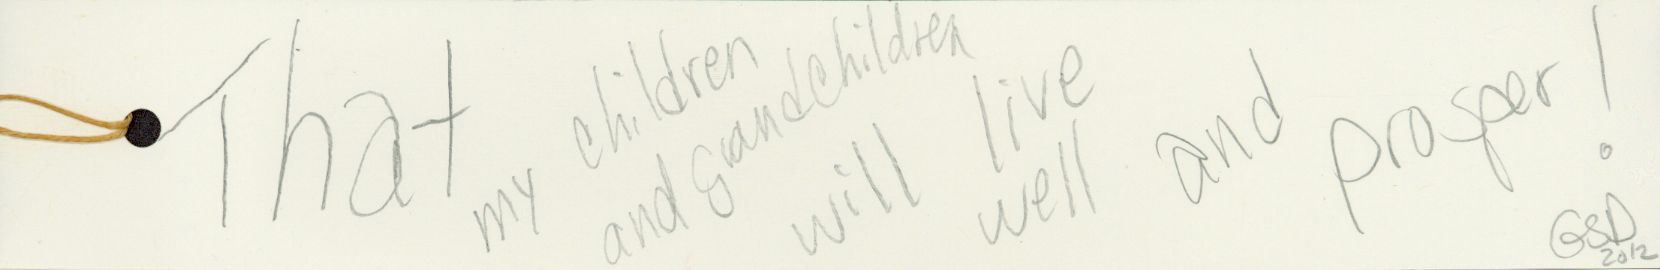 That my children
and Grandchildren
will live
well and prosper!
GSD
2012